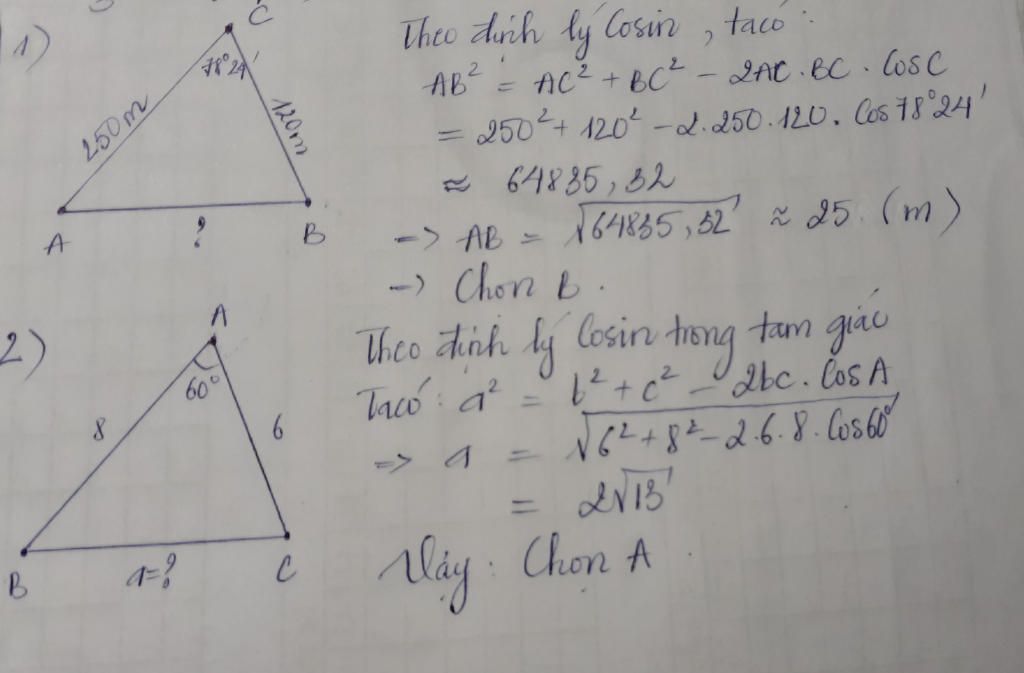 1)
C
78°24'
250m
120m
A
?
B
Theo định lý Cosin, ta có:
AB² = AC² + BC² - 2AC.BC.CosC
= 250² + 120² - 2.250.120.Cos78°24'
≈ 64835,32
=> AB = √64835,32 ≈ 25 (m)
-> Chọn B.
2)
A
60°
8
6
B
a=?
C
Theo định lý Cosin trong tam giác
Ta có: a² = b² + c² - 2bc.CosA
=> a = √6² + 8² - 2.6.8.Cos60°
= 2√13
Vậy: Chọn A.